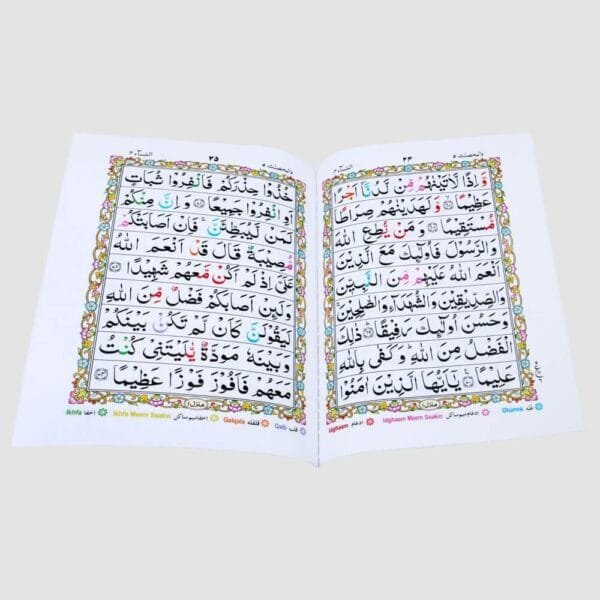 والمحصنت ۵
۲۴
النسآء ۴
وَّاِذًا لَّاٰتَيْنٰهُمْ مِّنْ لَّدُنَّاۤ اَجْرًا
عَظِيْمًا ۙ وَّلَهَدَيْنٰهُمْ صِرَاطًا
مُّسْتَقِيْمًا وَمَنْ يُّطِعِ اللّٰهَ
وَالرَّسُوْلَ فَاُولٰٓئِكَ مَعَ الَّذِيْنَ
اَنْعَمَ اللّٰهُ عَلَيْهِمْ مِّنَ النَّبِيّٖنَ
وَالصِّدِّيْقِيْنَ وَالشُّهَدَآءِ وَالصّٰلِحِيْنَ ۚ
وَحَسُنَ اُولٰٓئِكَ رَفِيْقًا ؕ ذٰلِكَ
الْفَضْلُ مِنَ اللّٰهِ ؕ وَكَفٰى بِاللّٰهِ
عَلِيْمًا يٰۤاَيُّهَا الَّذِيْنَ اٰمَنُوْا
Ghunna غنہ
Idghaam Meem Saakin ادغام میم ساکن
Idghaam ادغام
والمحصنت ۵
۲۵
النسآء ۴
خُذُوْا حِذْرَكُمْ فَانْفِرُوْا ثُبَاتٍ
اَوِ انْفِرُوْا جَمِيْعًا وَاِنَّ مِنْكُمْ
لَمَنْ لَّيُبَطِّئَنَّ ۚ فَاِنْ اَصَابَتْكُمْ
مُّصِيْبَةٌ قَالَ قَدْ اَنْعَمَ اللّٰهُ
عَلَيَّ اِذْ لَمْ اَكُنْ مَّعَهُمْ شَهِيْدًا
وَلَئِنْ اَصَابَكُمْ فَضْلٌ مِّنَ اللّٰهِ
لَيَقُوْلَنَّ كَاَنْ لَّمْ تَكُنْۢ بَيْنَكُمْ
وَبَيْنَهٗ مَوَدَّةٌ يّٰلَيْتَنِيْ كُنْتُ
مَعَهُمْ فَاَفُوْزَ فَوْزًا عَظِيْمًا
Qalb قلب
Qalqala قلقله
Ikhfa Meem Saakin اخفا میم ساکن
Ikhfa اخفا